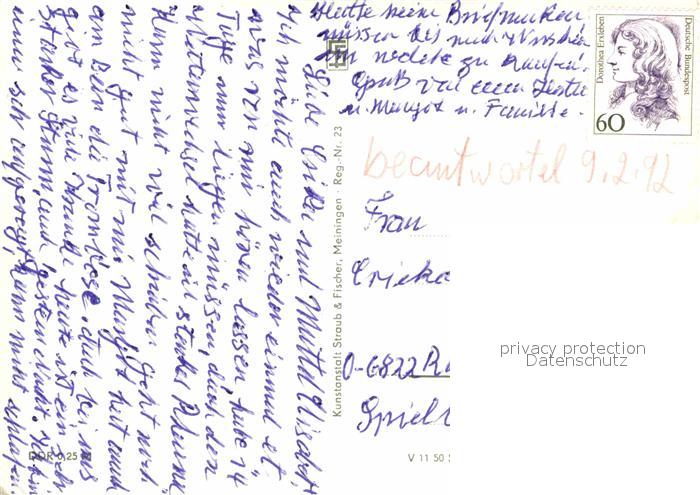 Liebe Erika und Mutter Elisabeth
Ich möchte auch wieder einmal et
was von mir hören lassen, habe 14
Tage nur liegen müssen, durch den
Wetterwechsel hatte ich starkes Rheuma
kann nicht viel schreiben geht noch
nicht gut mit mir Margot hat auch
am Bein die Trombose. auch bei uns
gibt es viele heute ist ein sehr
starker Sturm, auch gestern Nacht. Ich bin
immer sehr aufgeregt, kann nicht schlafen
Heute keine Briefmarken
müssen erst nach
zu kaufen.
Gruß von eurer
u. Margot u. Familie.
Dorothea Erxleben
Deutsche Bundespost
60
beantwortet 9.2.92
Frau
Erika
O-6822 R
Spiel
privacy protection
Datenschutz
Kunstanstalt Straub & Fischer, Meiningen · Reg.-Nr. 23
DDR 0,25 M
V 11 50